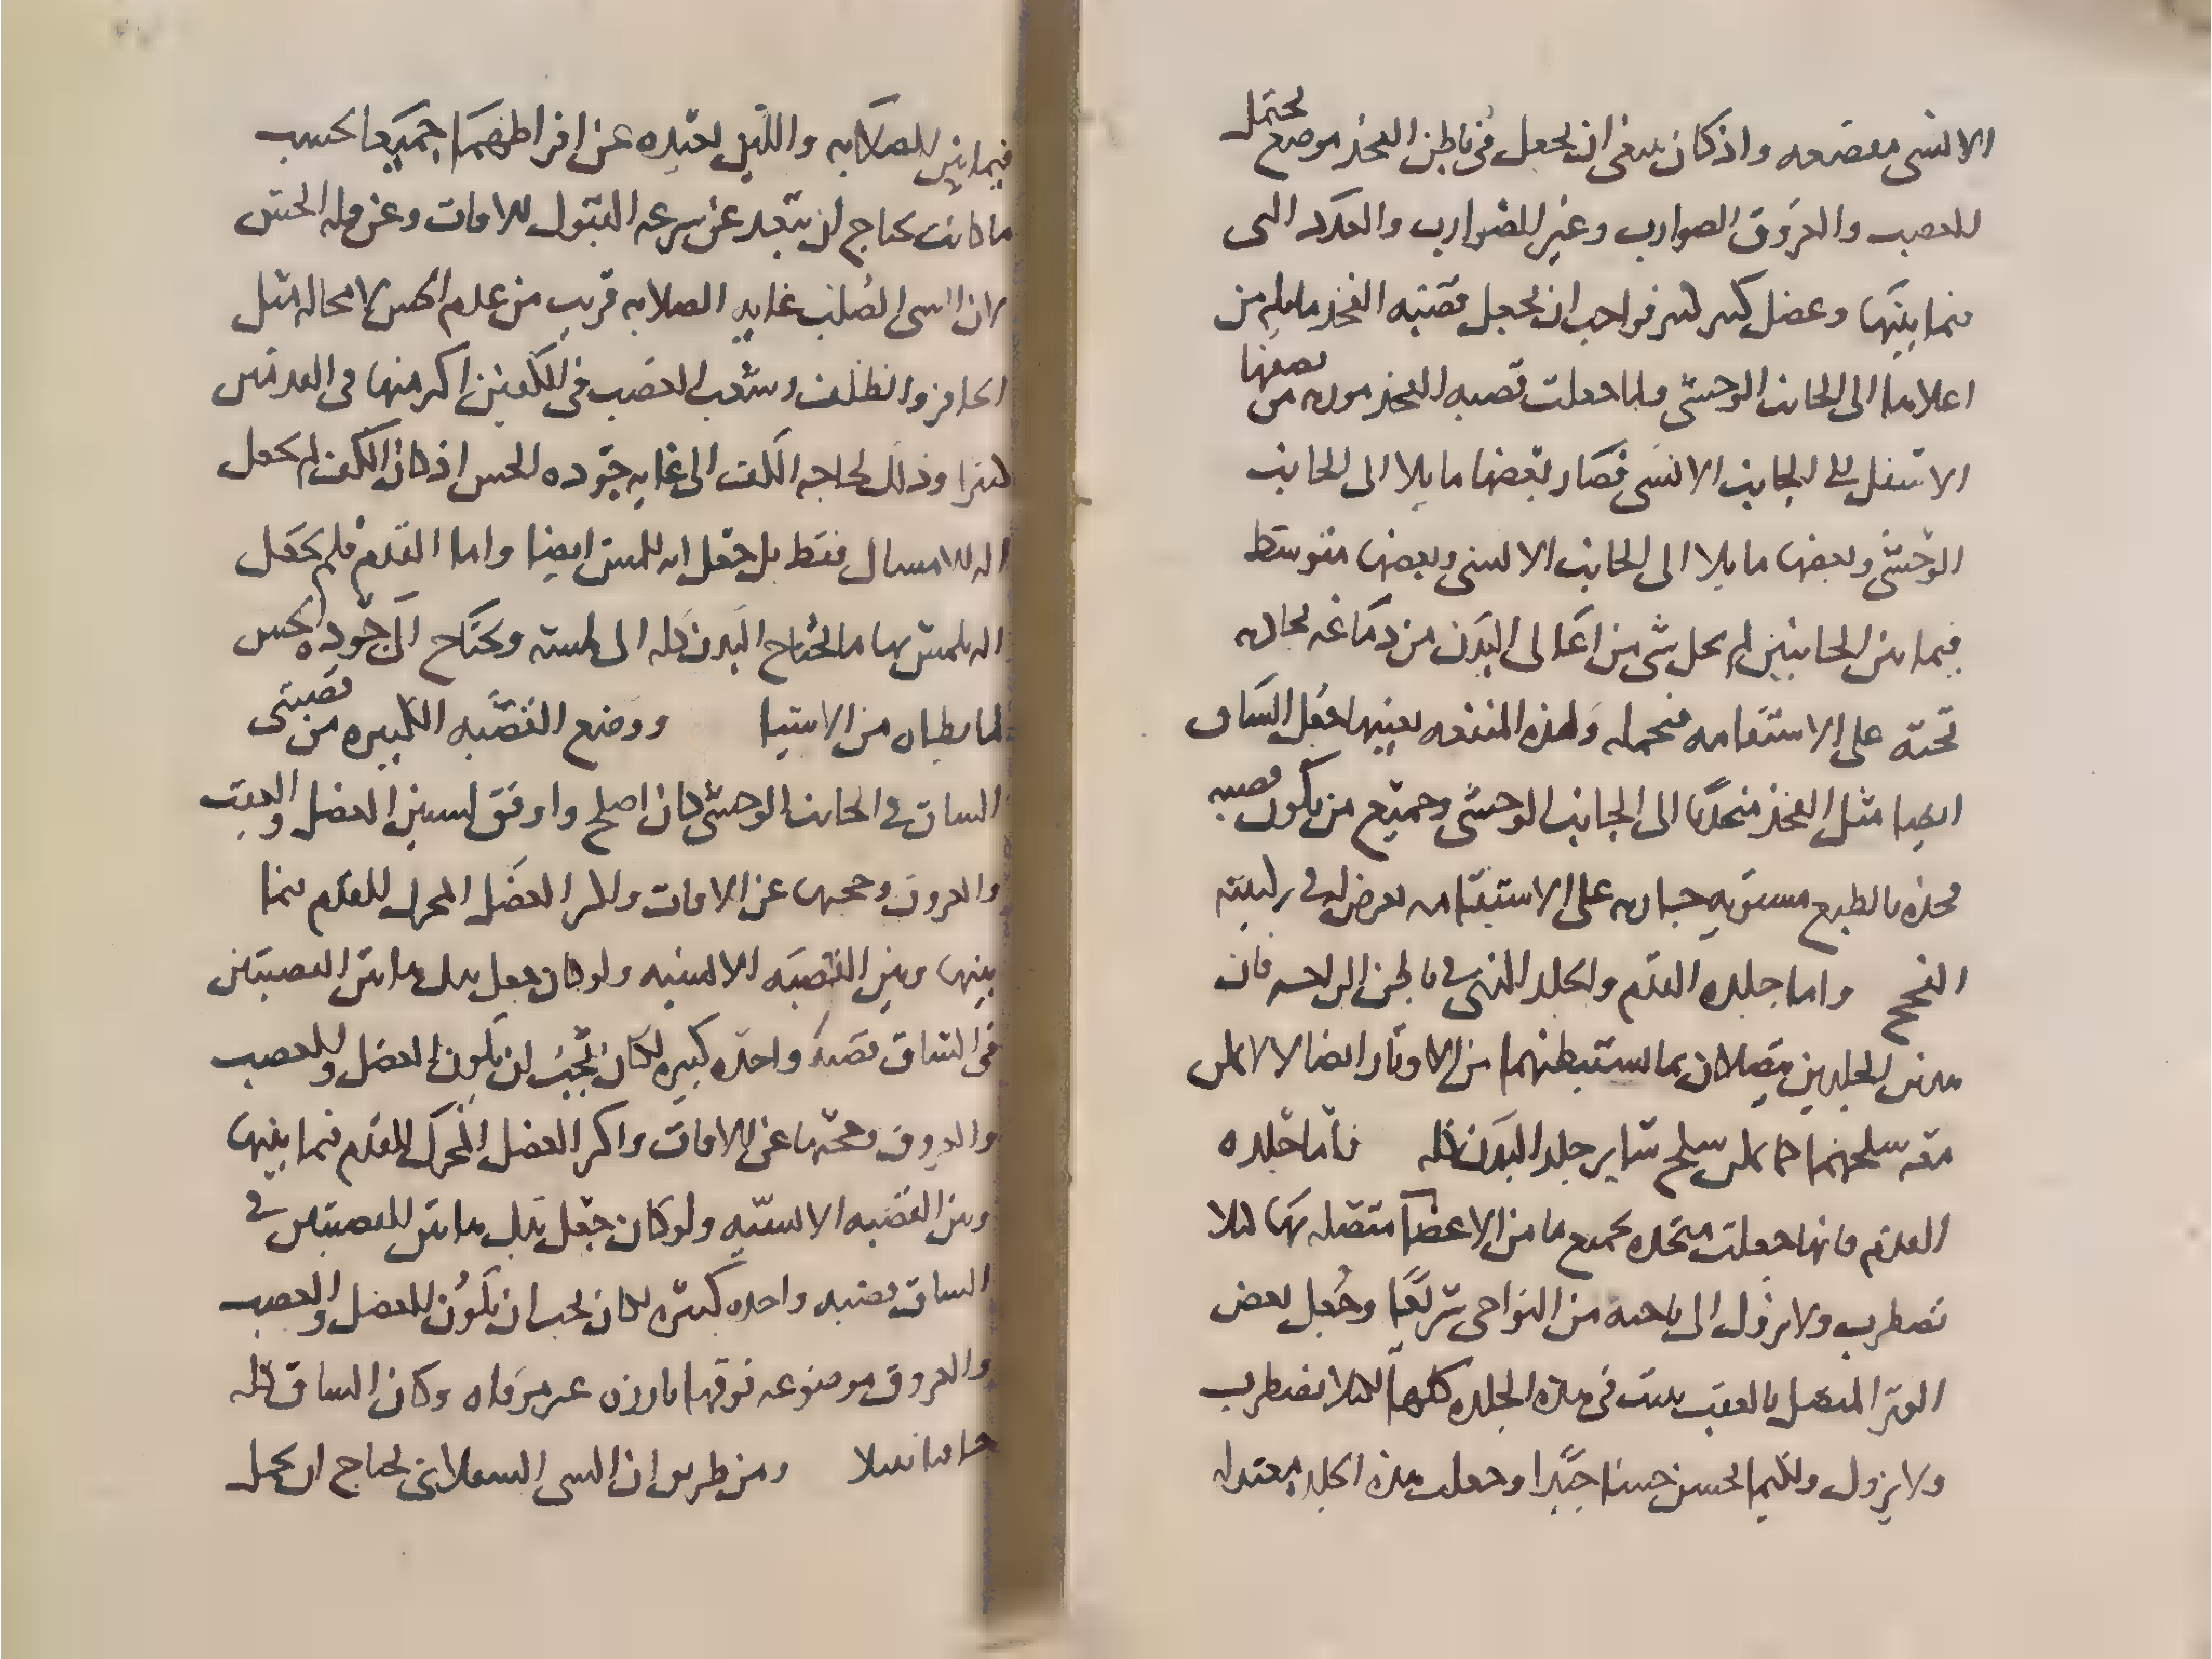 الانسى معضعه واذ كان ينبغى ان يجعل فى باطن الفخذ موضع يحتمل
للعصب والعروق الضوارب وغير الضوارب والغدد التى
فيما بينها وعضل كبير فواجب ان يجعل قصبه الفخذ مايله من
اعلاها الى الجانب الوحشى ولما جعلت قصبه الفخذ من نصفها
الاسفل الى الجانب الانسى فصار بعضها مايلا الى الجانب
الوحشى وبعضها مايلا الى الجانب الانسى وبعضها متوسط
فيما بين الجانبين لم يخل شى من اعالى البدن من دعامه
تحته على الاستقامه فتحمله ولهذه المنفعه بعينها جعل الساق
ايضا مثل الفخذ منحدبا الى الجانب الوحشى وجميع من يكون قصبه
فخذه بالطبع مستويه على الاستقامه يعرض له فى ركبته
الفحج واما جلده القدم والجلد الذى فى باطن الراحه فان
هذين الجلدين متصلان بما يستبطنهما من الاوتار ايضا لا يمكن
معه سلخهما كما يمكن سلخ ساير جلد البدن كله فاما جلده
القدم فانها جعلت متحده بجميع ما من الاعضا متصله بها ليلا
تضطرب ولا تزول الى ناحيه من النواحى سريعا وجعل بعض
الوتر المتصل بالعقب ينبت فى هذه الجلده كلها ليلا تضطرب
ولا تزول وكيما تحسن حسنا جيدا وجعلت هذه الجلده معتدله
فيما بين الصلابه واللين بعيده عن افراطهما جميعا بحسب
ما كانت تحتاج ان تبعد عن سرعه القبول للافات وعن قله الحس
لان الشى الصلب غايه الصلابه قريب من عدم الحس لا محاله مثل
الحافر والظلف وشعب العصب فى الكفين اكثر منها فى القدمين
كثيرا وذلك لحاجه الكف الى غايه جوده الحس اذ كان الكف لم يجعل
اله للامساك فقط بل جعل اله للمس ايضا واما القدم فلم يجعل
اله يلمس بها ما يحتاج البدن كله الى لمسه وتحتاج الى جوده الحس
لما يطاه من الاشيا ووضع القصبه الكبيره من قصبتى
الساق فى الجانب الوحشى كان اصلح واوفق لستر العضل والعصب
والعروق وحجبها عن الافات واكثر العضل المحرك للقدم فيما
بينها وبين القصبه الانسيه ولو كان جعل بدل هاتين القصبتين
فى الساق قصبه واحده كبيره لكان يجب ان يكون العضل والعصب
والعروق وحجبها عن الافات واكثر العضل المحرك للقدم فيما بينها
وبين القصبه الانسيه ولو كان جعل بدل هاتين القصبتين فى
الساق قصبه واحده كبيره لكان يجب ان يكون العضل والعصب
والعروق موضوعه فوقها بارزه غير موقاه وكان الساق كله
ومن طريق ان الشى السفلانى يحتاج ان يحمل